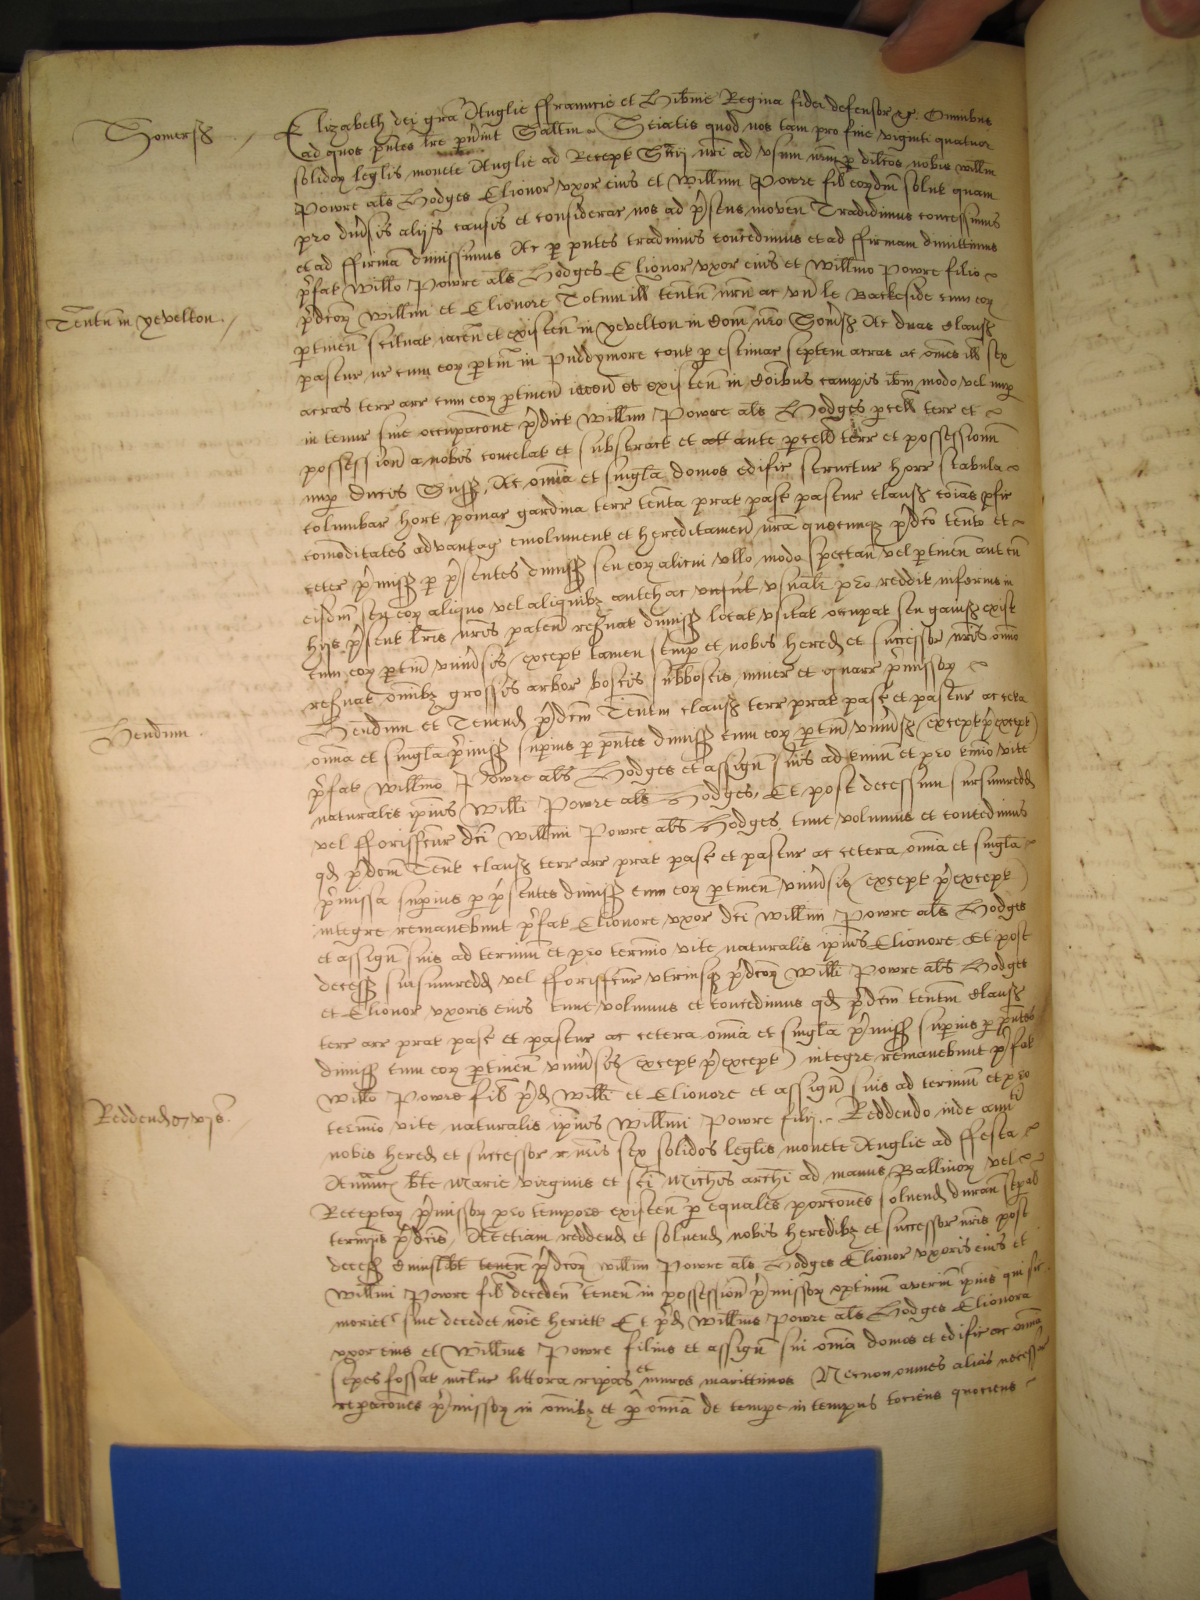 Somersʒ
Elizabeth dei gra Anglie ffrauncie et Hibnie Regina fidei defensor &c. Omnibus
ad quos pntes lre pvenint Saltm Sciatis quod nos tam pro fine viginti quatuor
solidoꝝ leglis monete Anglie ad Recept Sccij nri ad vsum nrm p dilcos nobis willm
Powre als Hodges Elionor vxor eius et Willmm Powre fil eoꝝdm solut quam
pro diusis alijs causis et considerac nos ad psens moven Tradidimus concessimus
et ad ffirma dimissimus Ac p pntes tradimus concedimus et ad ffirmam dimittimus
pfat Willo Powre als Hodges Elionor vxor eius et Willmo Powre filio
pdcoꝝ Willmi et Elionore Totum ill tentm nrm ac vn le Backeside cum eoꝝ
Tentm in yevelton
ptinen scituat iacen et existen in yevelton in Com nro Somsʒ Ac duas Clausʒ
pastur cum eoꝝ ptin in Puddymore cont p estimac septem acras ac omes ill sex
acras terr arr cum eoꝝ ptinen iacen et existen in coibus campis ibm modo vel nup
in tenur siue occupacone pdict Willmi Powre als Hodges pcell terr et
possession a nobis concelat et subtract et ante pcell terr et possessionu
nup ducis Suffʒ, Ac omia et singla domos edific structur horr stabula
columbar hort pomar gardina terr tenta prat pasc pastur clausʒ coias pfic
comoditates advantag emolument et hereditamen nra quecumqʒ pdco tento et
ceter pmissʒ p psentes dimissʒ seu eoꝝ alicui vllo modo spectan vel ptinen aut cu
eisdm seu eoꝝ aliquo vel aliquibʒ antehac vsualr pro reddit inferius in
hijs psent lris nris paten reseruat dimissʒ locat vsitat occupat seu gauisʒ exist
cum eoꝝ ptin vniusis except tamen semp et nobis hered et successor nris omno
reseruat omibʒ grossis arbor boscis subboscis miner et quarr pmissoꝝ
Hendum
Hendum et Tenend pdcm Tentm clausʒ terr prat pasc et pastur ac cetera
omia et singla pmissʒ supius p pntes dimissʒ cum eoꝝ ptin vniusʒ (except pexcept)
pfat Willmo Powre als Hodges et assign suis ad terminu et pro termio vite
naturalis ipius Willi Powre als Hodges, Et post decessum sursumredd
vel fforisfcur dci Willmi Powre als Hodges, tunc volumus et concedimus
qd pdcm Tent clausʒ terr arr prat pasc et pastur ac cetera omia et singla
pmissa supius p psentes dimissʒ cum eoꝝ ptinen vniusis (except pexcept)
integre remanebunt pfat Elionore vxor dci Willmi Powre als Hodges
et assign suis ad terminu et pro termino vite naturalis ipius Elionore Et post
decessʒ sursumredd vel fforisfcur vtriusqʒ pdcoꝝ Willi Powre als Hodges
et Elionor vxoris eius tunc volumus et concedimus qd pdcm tentm Clausʒ
terr arr prat pasc et pastur ac cetera omia et singla pmissʒ supius p pntes
dimissʒ cum eoꝝ ptinen vniusis (except pexcept) integre remanebunt pfat
Willo Powre fil pd Willi et Elionore et assign suis ad terminu et pro
Reddend vjs.
termio vite naturalis ipius Willmi Powre filij. Reddendo inde annti
nobis hered et successor nris sex solidos leglis monete Anglie ad ffesta
Annuc bte Marie virginis et sci Michis archi ad manus Ballivoꝝ vel
Receptoꝝ pmissoꝝ pro tempore existen p equales porcones soluend duran sepal
termis pdcis, Ac etiam reddend et soluend nobis heredibʒ et successor nris post
decessʒ cuiuslibt tenen pdcoꝝ willm Powre als Hodges Elionor vxoris eius et
Willmi Powre fil deceden tenen in possession pmissoꝝ optimu aueriu ipius qui sic
moriet siue decedet noie heriett Et pd Willmus Powre als Hodges Elionora
vxor eius et Willmus Powre filius et assign sui omia domos et edific ac omia
sepes fossat inclur littora ripas et muros marittimos Necnon omnes alias necessar
repacones pmissoꝝ in omibʒ et p omia de tempe in tempus tociens quociens